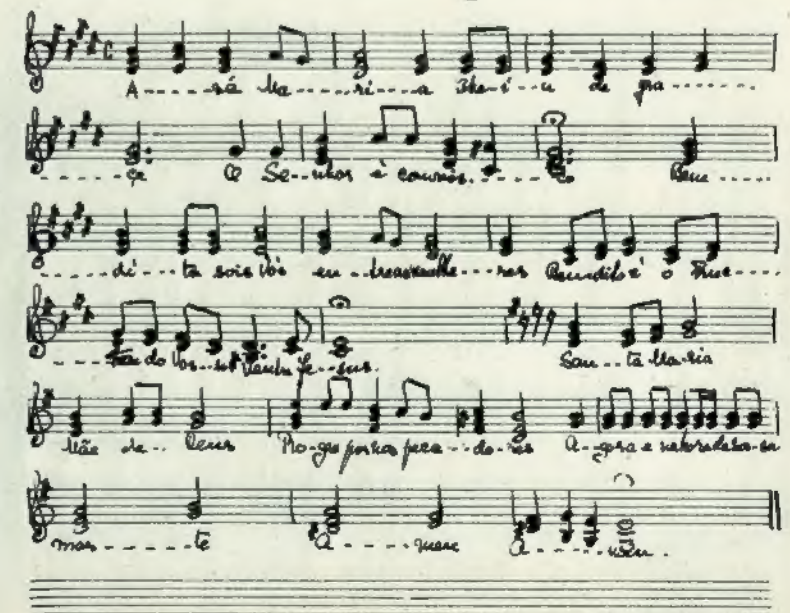 A-----vé Ma----ri---a Che-i-u de gra------
-----ça O Se--nhor é convos.-----co Ben-----
-----di---ta sois Vós en--treasmulhe---res Bendito é o Fruc----
----to do Vos--so Ventre Je--sus. San--ta Ma-ria
Mãe de-- Deus Ro-gae por nós peca---do-res A--gora e na hora da nossa
mor-----te A----men A-----men.